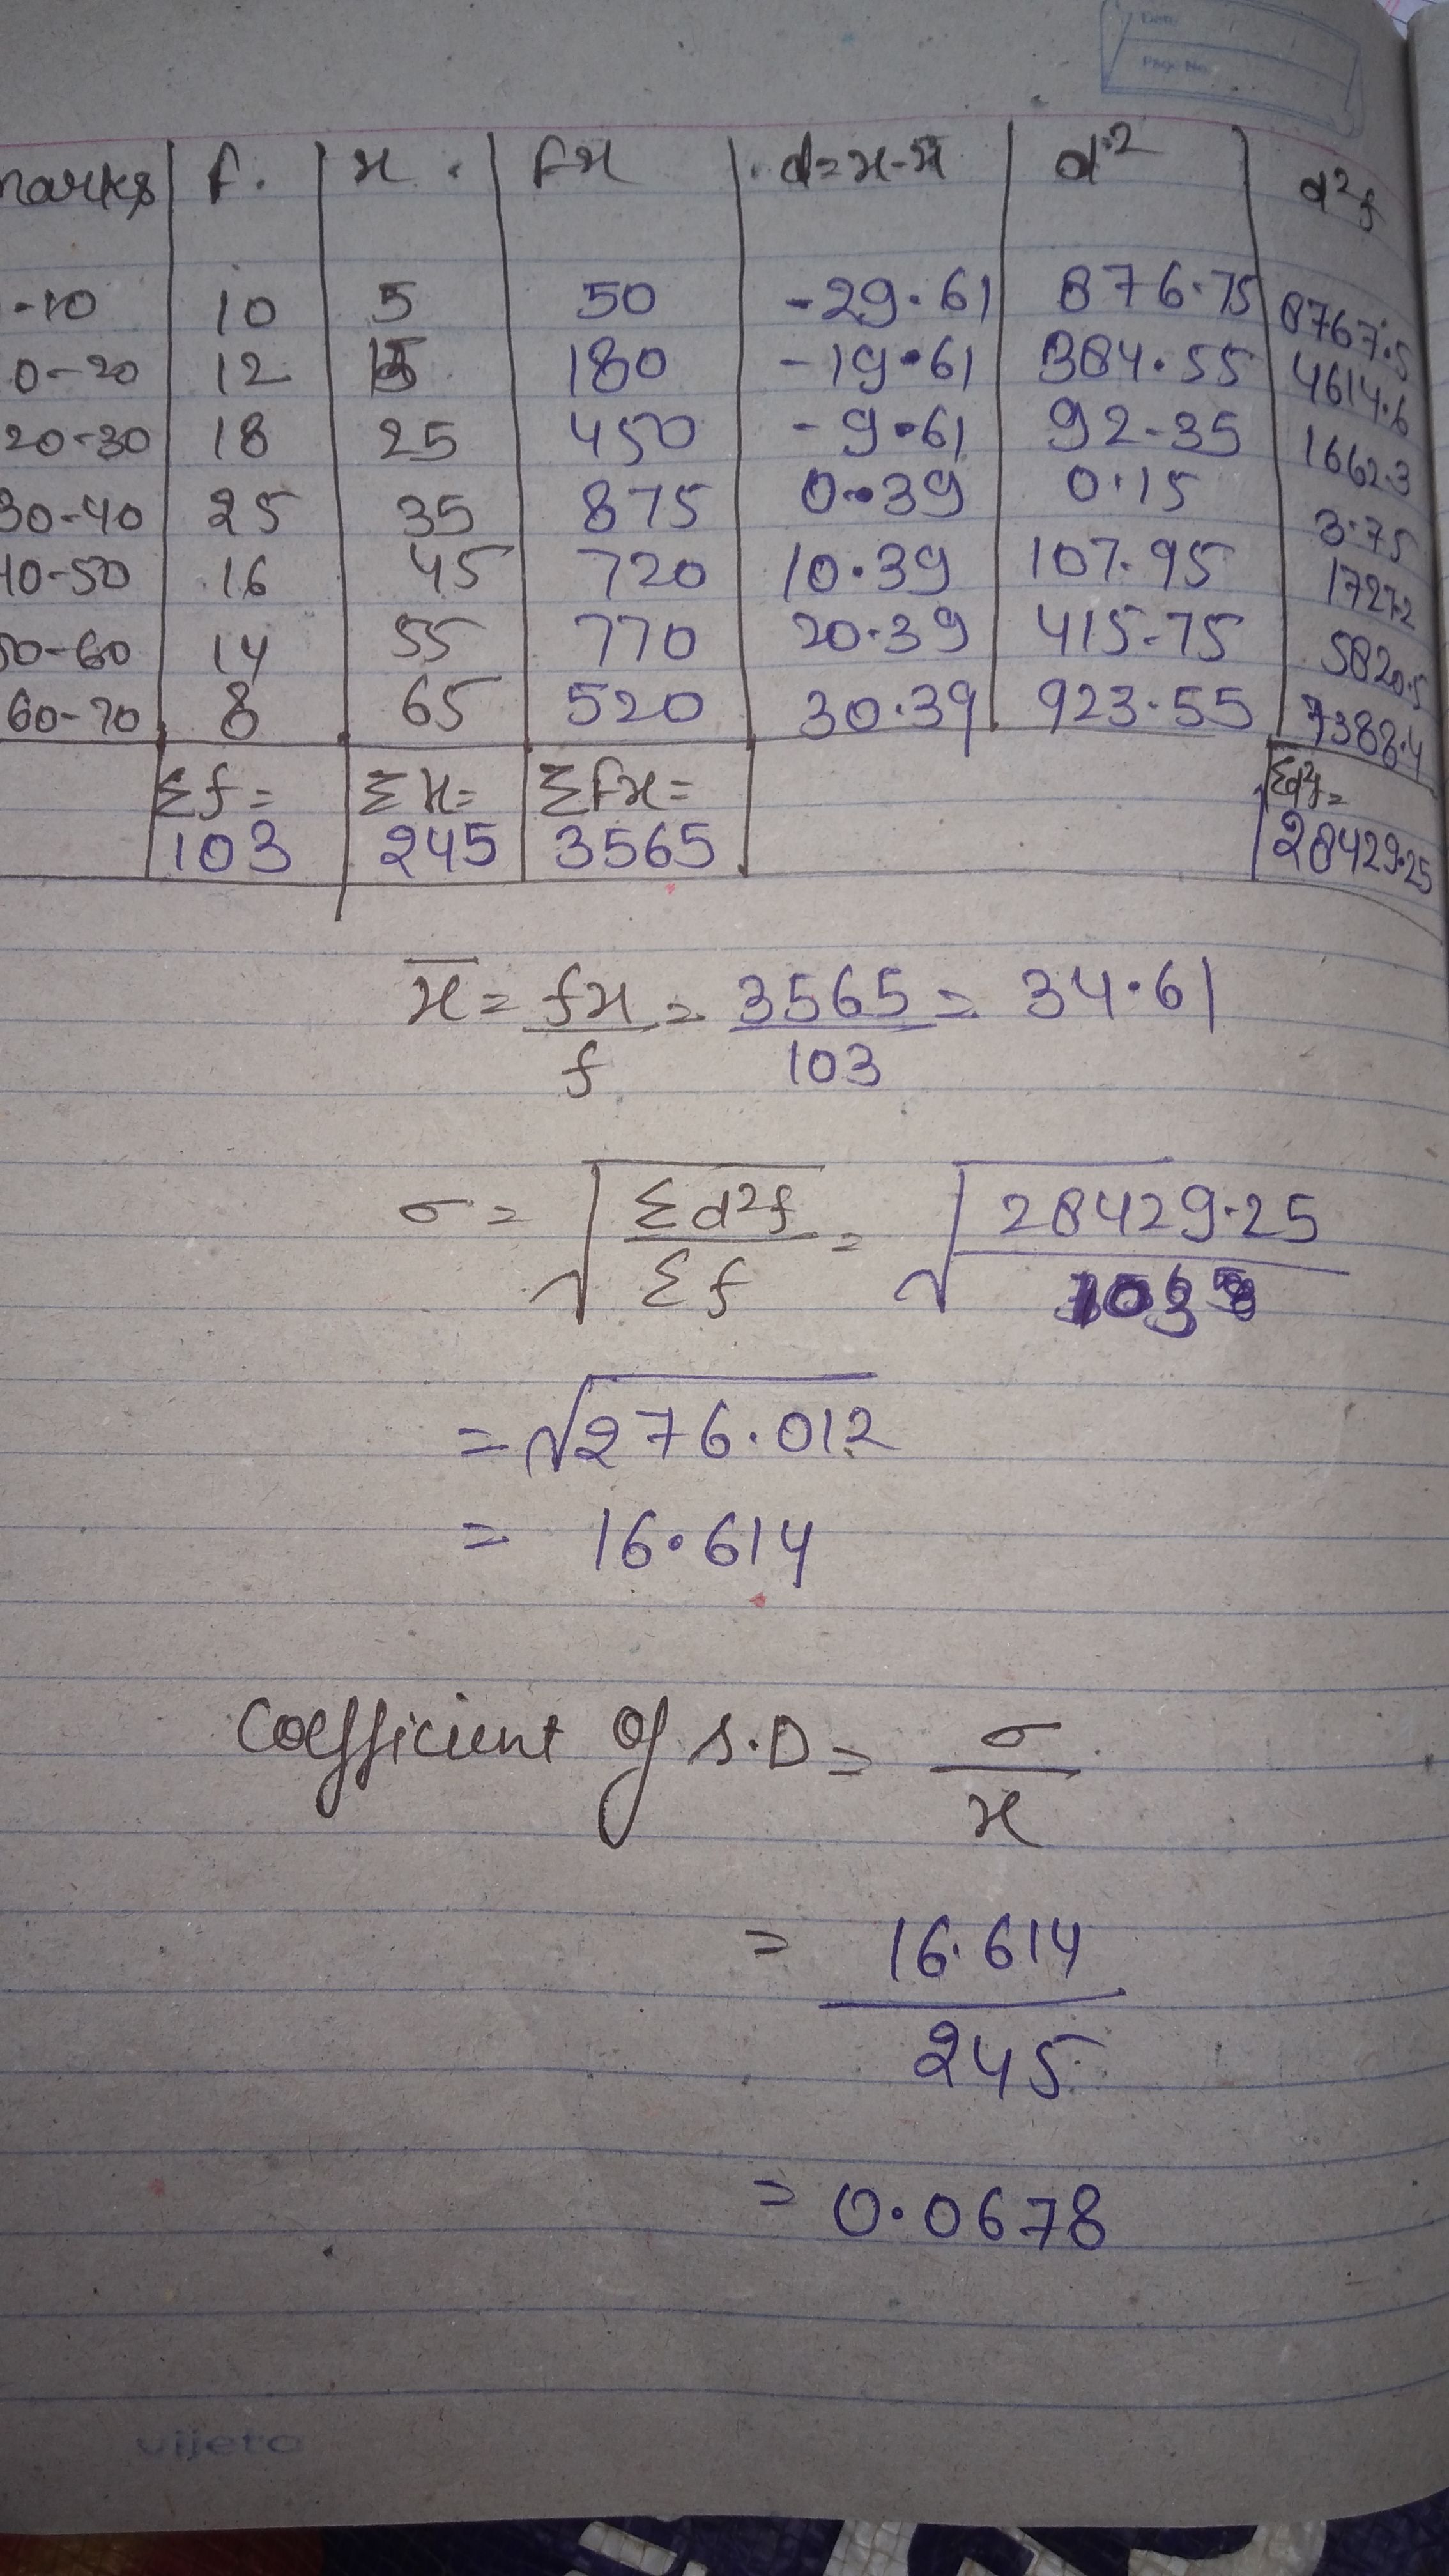 Date
Page No.
marks f. x. fx d=x-x̄ d² d²f
-10 10 5 50 -29.61 876.75 8767.5
0-20 12 15 180 -19.61 384.55 4614.6
20-30 18 25 450 -9.61 92.35 1662.3
30-40 25 35 875 0.39 0.15 3.75
10-50 16 45 720 10.39 107.95 1727.2
50-60 14 55 770 20.39 415.75 5820.5
60-70 8 65 520 30.39 923.55 7388.4
Σf= Σx= Σfx= Σd²f=
103 245 3565 28429.25
x̄ = fx/f = 3565/103 = 34.61
σ = √Σd²f/Σf = √28429.25/103
= √276.012
= 16.614
Coefficient of S.D = σ/x
= 16.614/245
= 0.0678
vijeta